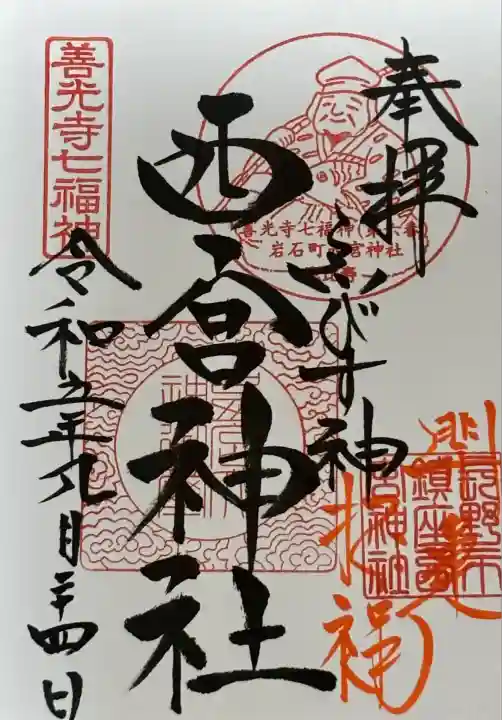 奉拝
ゑびす神
西宮神社
令和五年九月二十四日
善光寺七福神
善光寺七福神(第六番)
岩石町西宮神社
長野市
鎮座西
宮神社
開運
招福